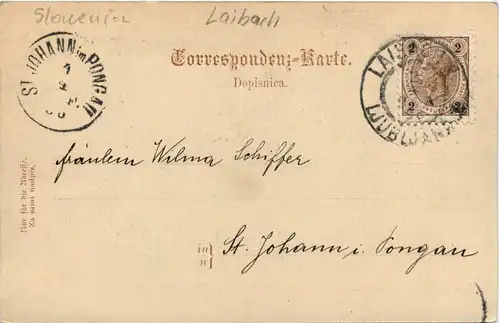 Slovenia Laibach
ST. JOHANN in PONGAU
1
Correspondenz-Karte.
Dopisnica.
LAIBACH
LJUBLJANA
2 2
2 2
Fräulein Wilma Schiffer
in
v
St. Johann i. Pongau
Nur für die Adresse.
Za sami nadpis.